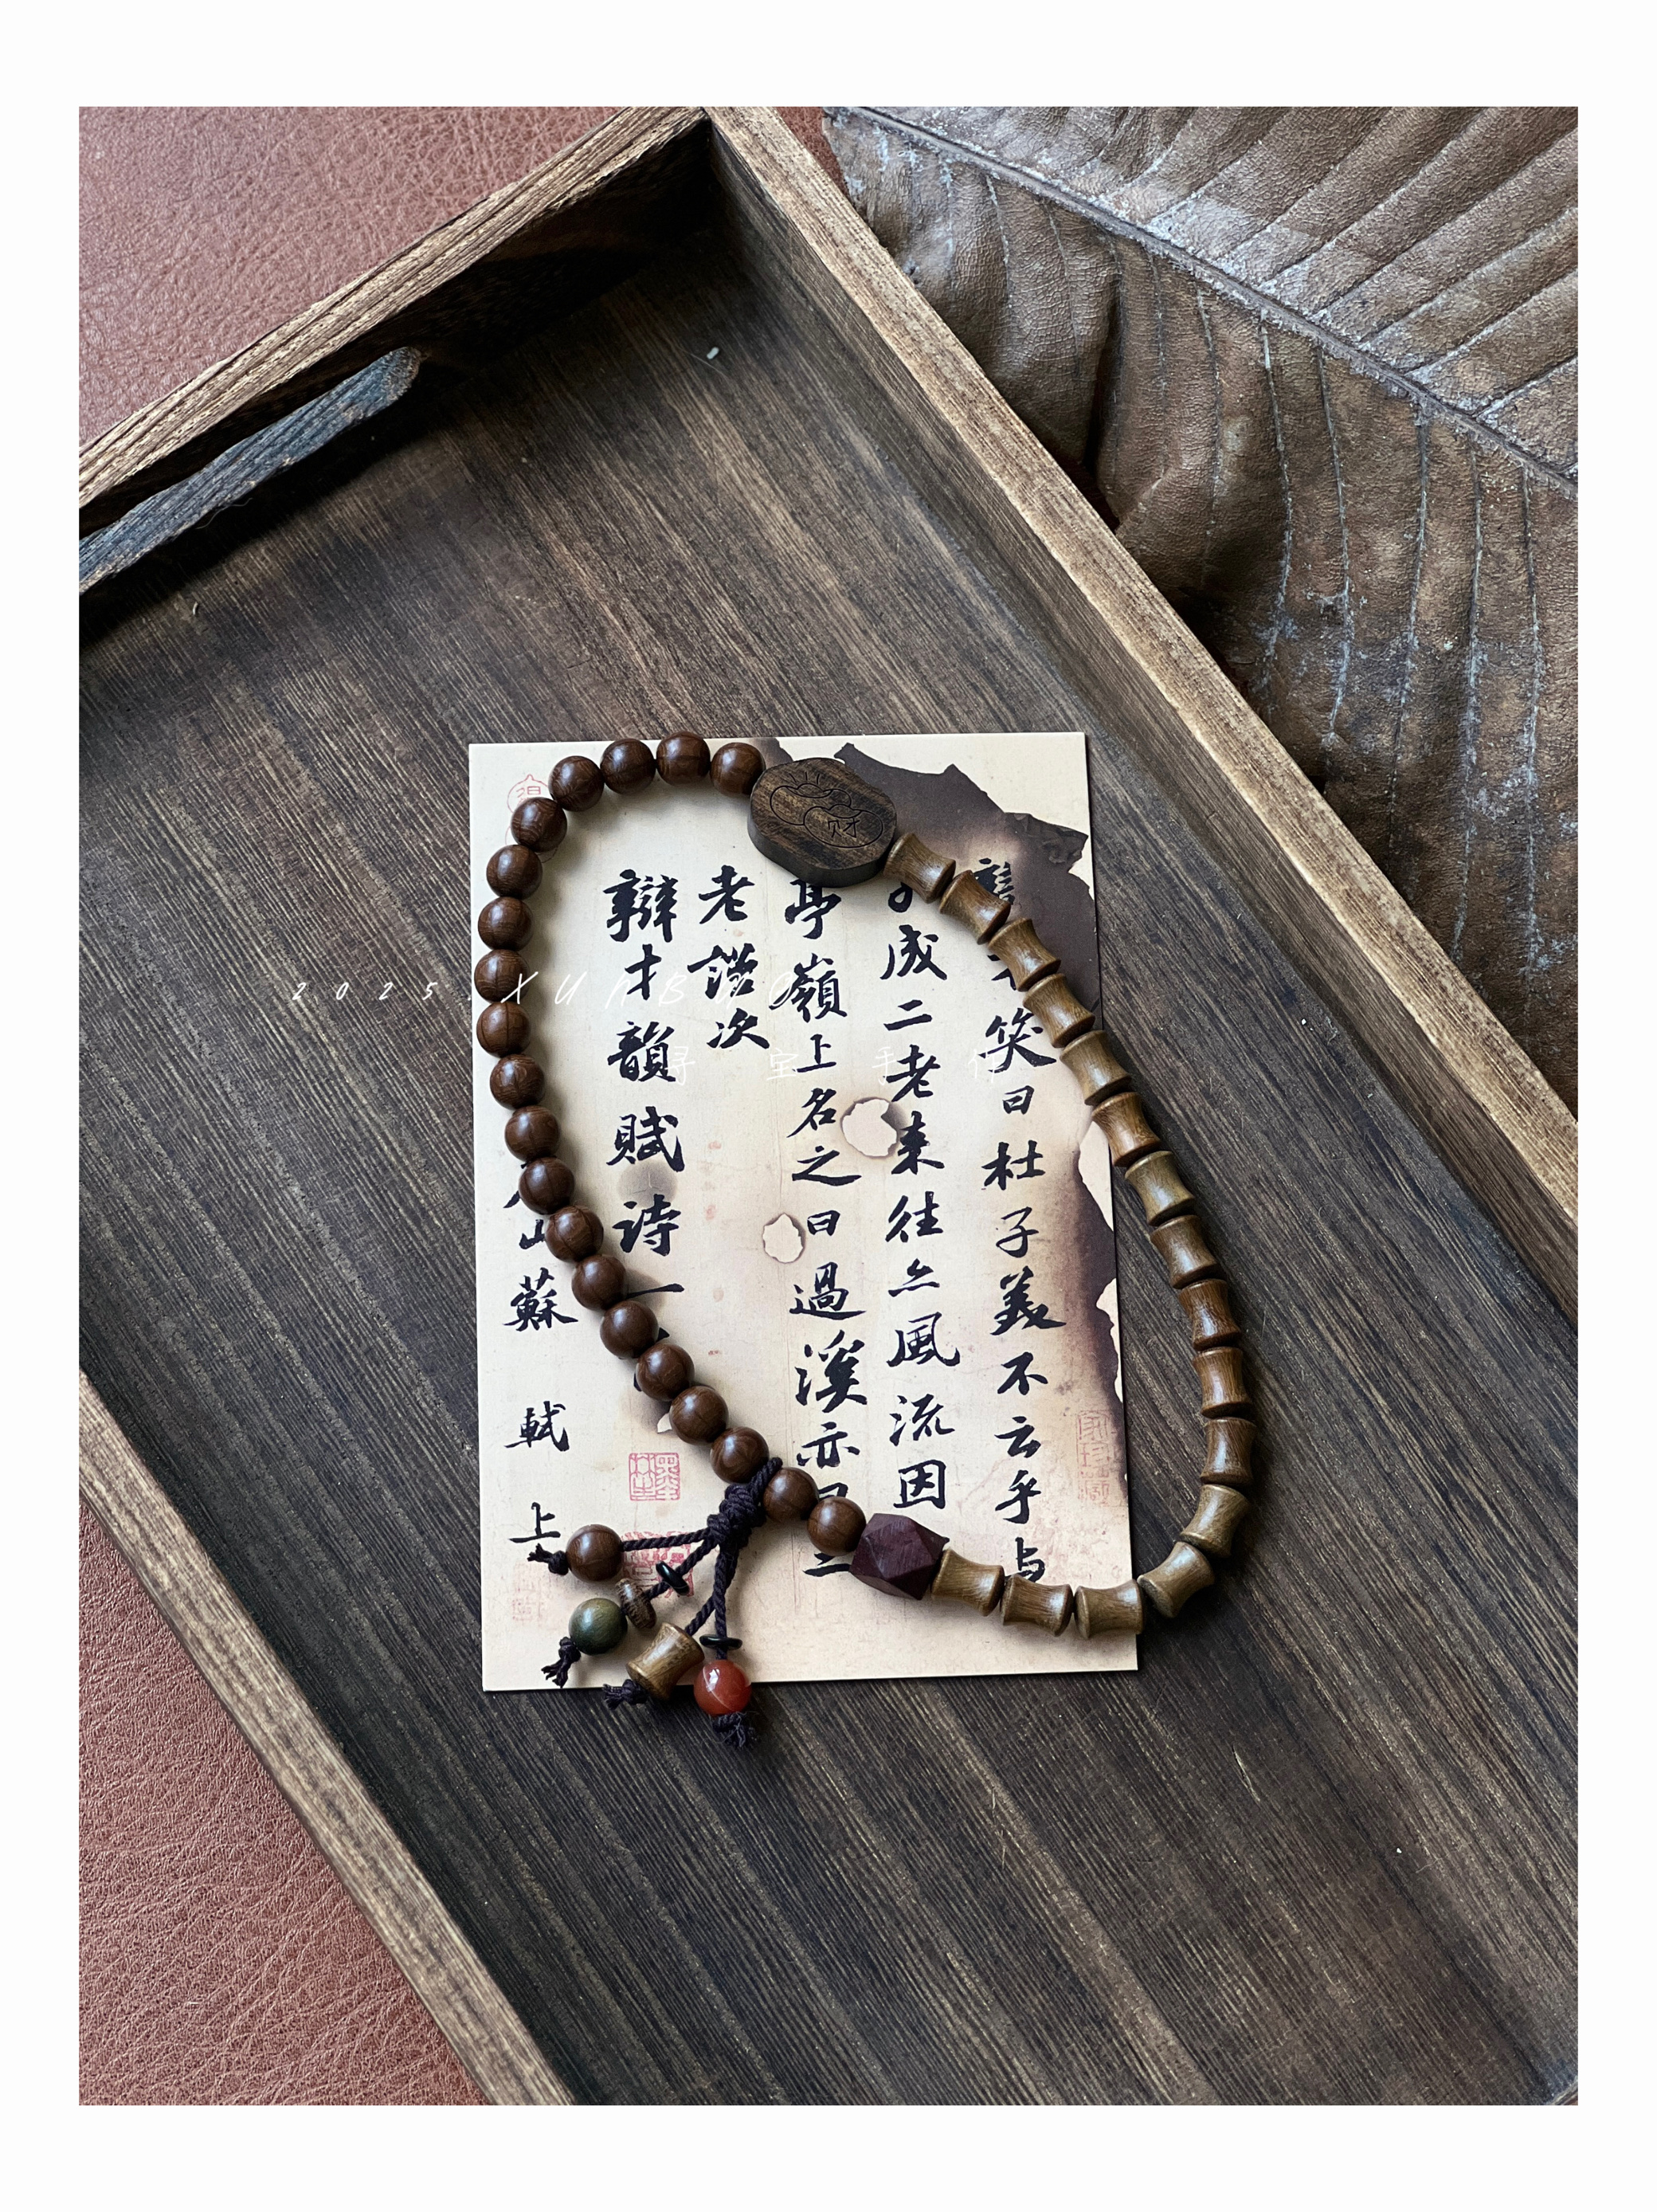 财
笑曰杜子美不云乎与
成二老来往亦風流因
亭嶺上名之曰過溪亦曰二
老謹次
辯才韻賦詩一
山蘇軾上
2025.XUNBAO
寻宝手作